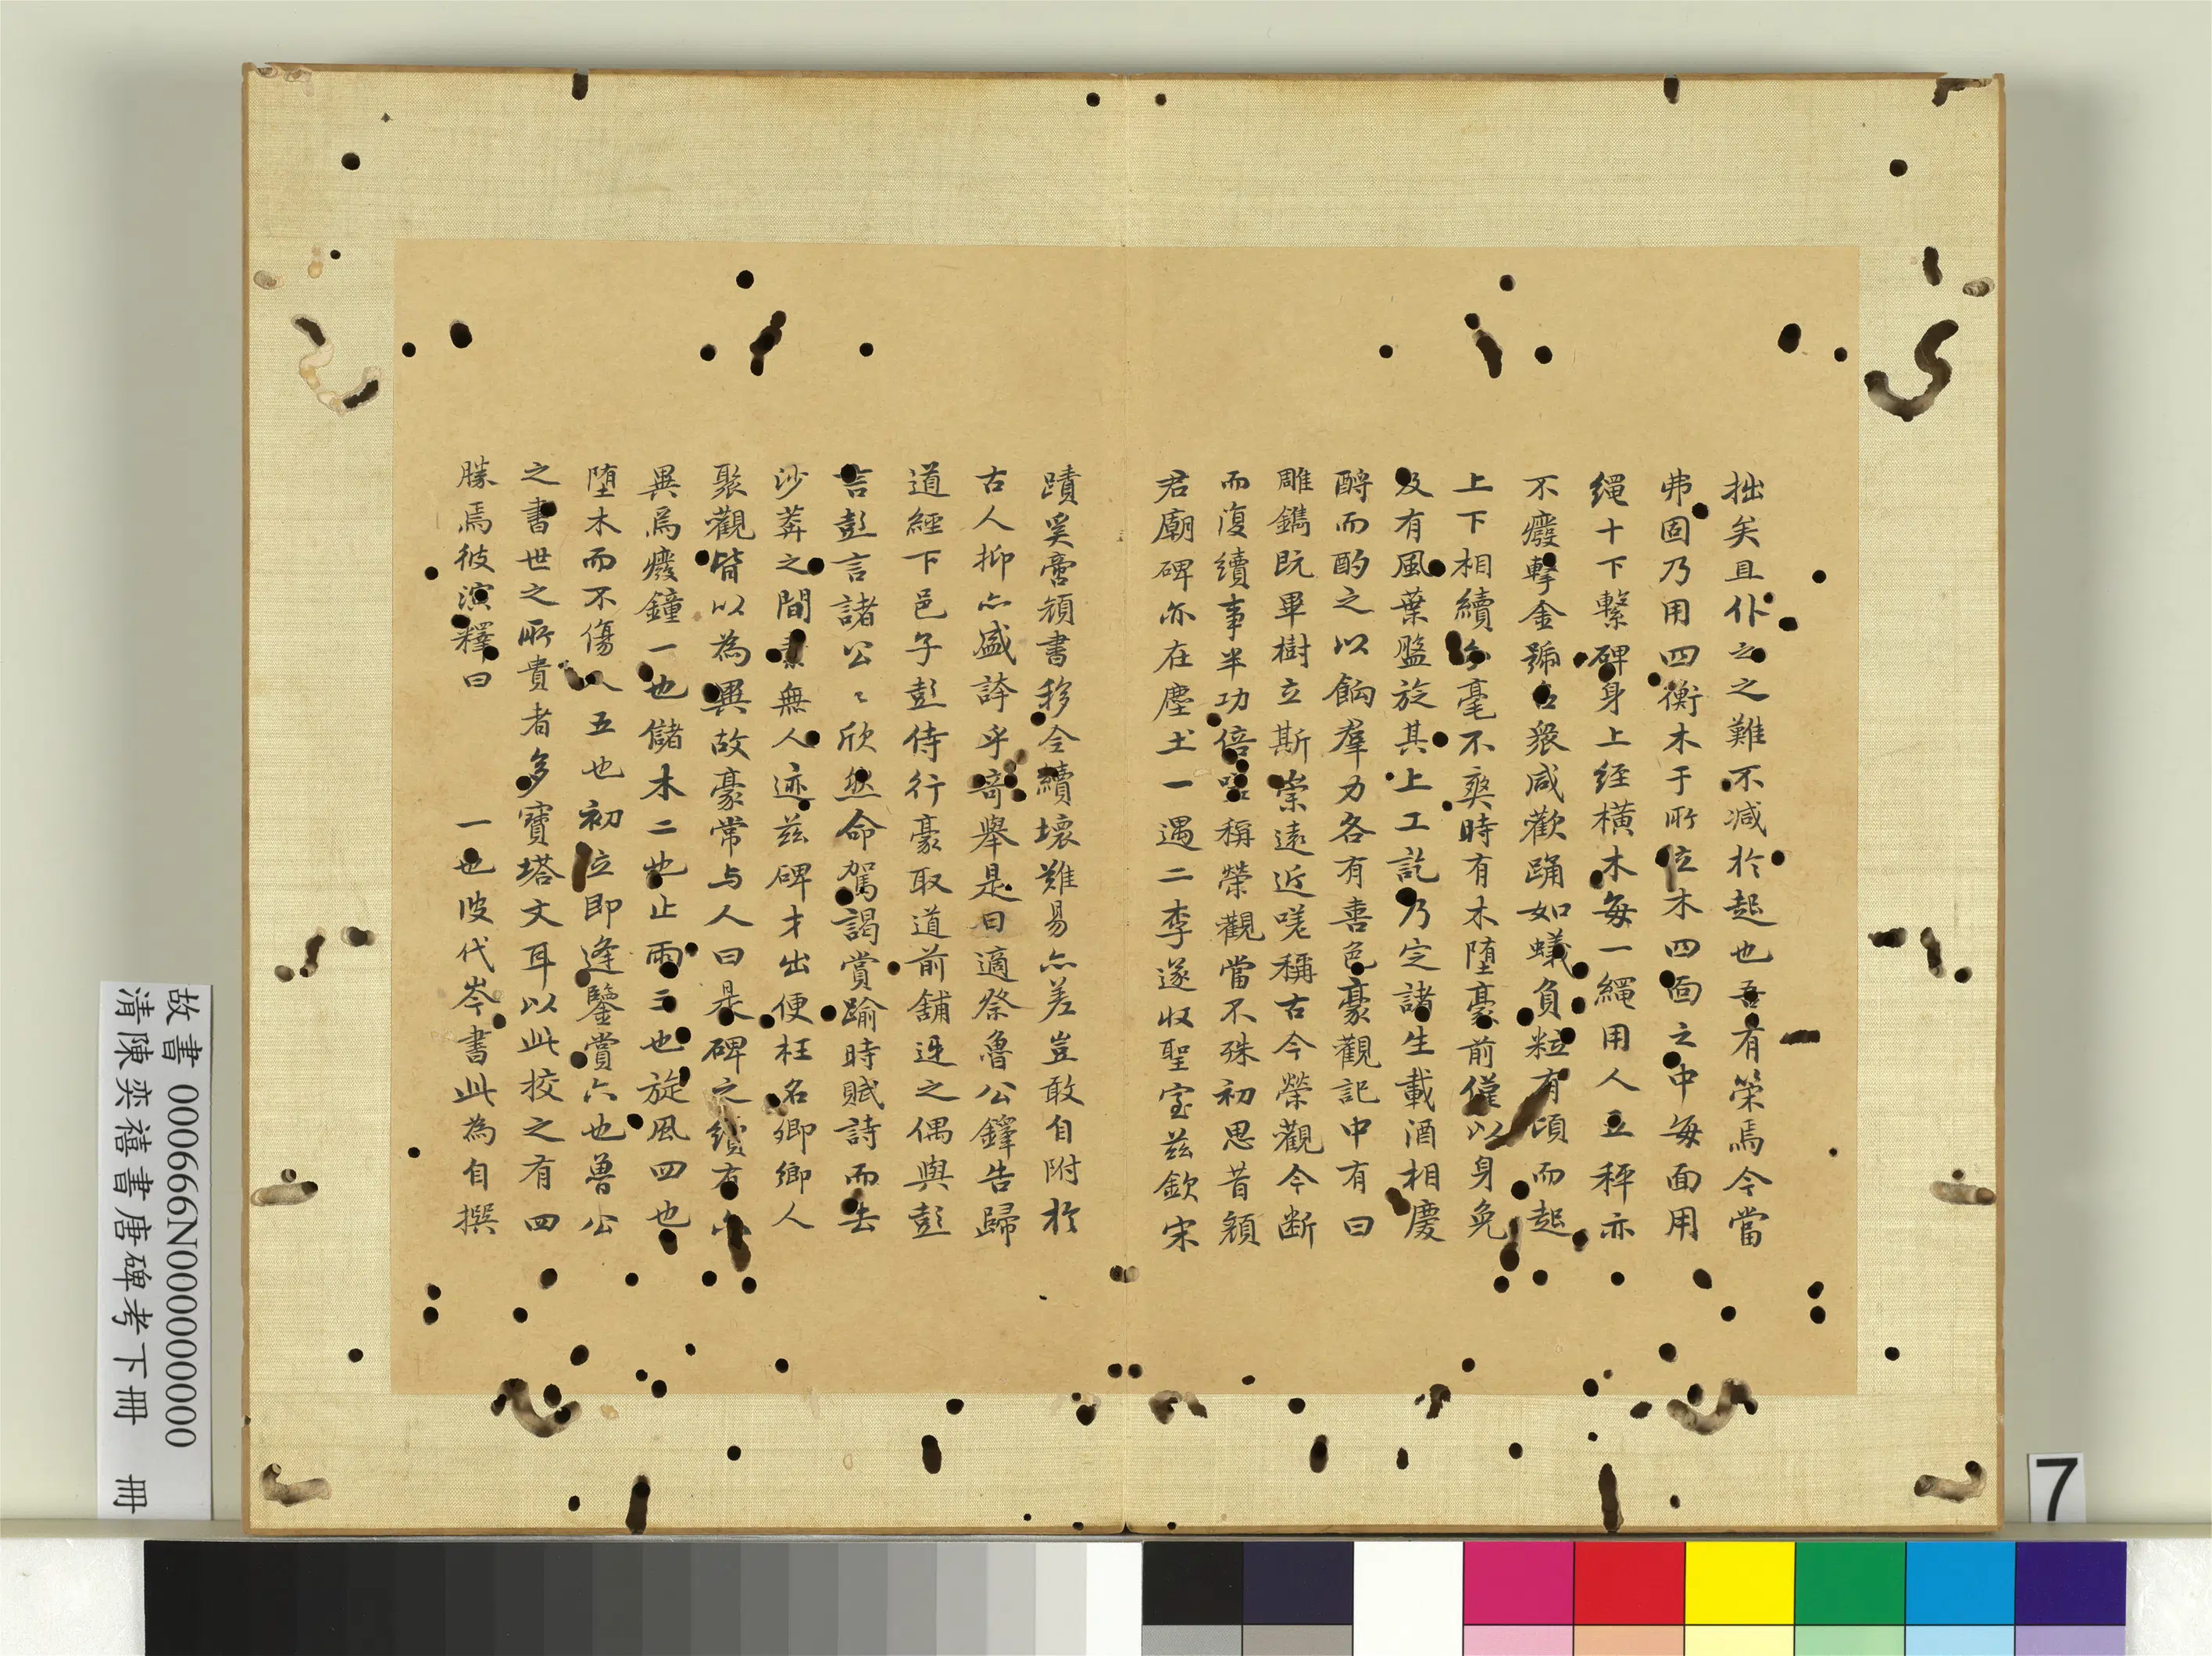 拙矣且仆之之難不減於起也吾有策焉今當
弗固乃用四衡木于所位木四面之中每面用
繩十下繫碑身上經橫木每一繩用人五秤亦
不癈擊金號召衆咸歡踊如蟻負粒有頃而起
上下相續分毫不爽時有木堕豪前僅以身免
及有風葉盤旋其上工訖乃定諸生載酒相慶
酹而酌之以餉羣力各有喜色豪觀記中有曰
雕鐫既畢樹立斯崇遠近嗟稱古今榮觀今断
而復續事半功倍嗟稱榮觀當不殊初思昔顏
君廟碑亦在塵土一遇二李遂收聖室茲欽宋
蹟奚啻顔書移今續壞難易亦差豈敢自附於
古人抑亦盛誇乎奇舉是日適祭魯公鐸告歸
道經下邑子彭侍行豪取道前舖迓之偶與彭
言彭言諸公〻欣然命駕謁賞踰時賦詩而去
沙莽之間素無人迹茲碑才出便枉名卿鄉人
聚觀皆以為異故豪常与人曰是碑之續有六
異焉癈鐘一也儲木二也止雨三也旋風四也
堕木而不傷人五也初立即逢鑒賞六也魯公
之書世之所貴者多寶塔文耳以此挍之有四
勝焉彼演釋曰　一也彼代岑書此為自撰
故書 000666N000000000
清陳奕禧書唐碑考下冊　冊
7